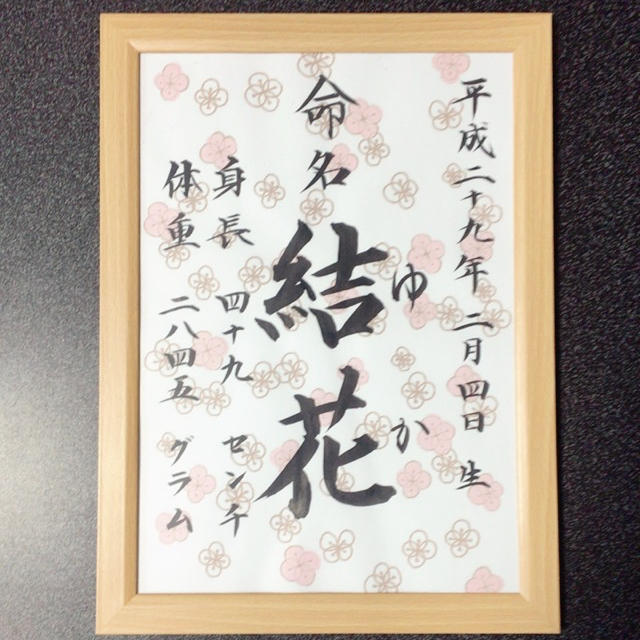 平成二十九年二月四日生
命名
結花
ゆか
身長 四十九 センチ
体重 二八四五 グラム